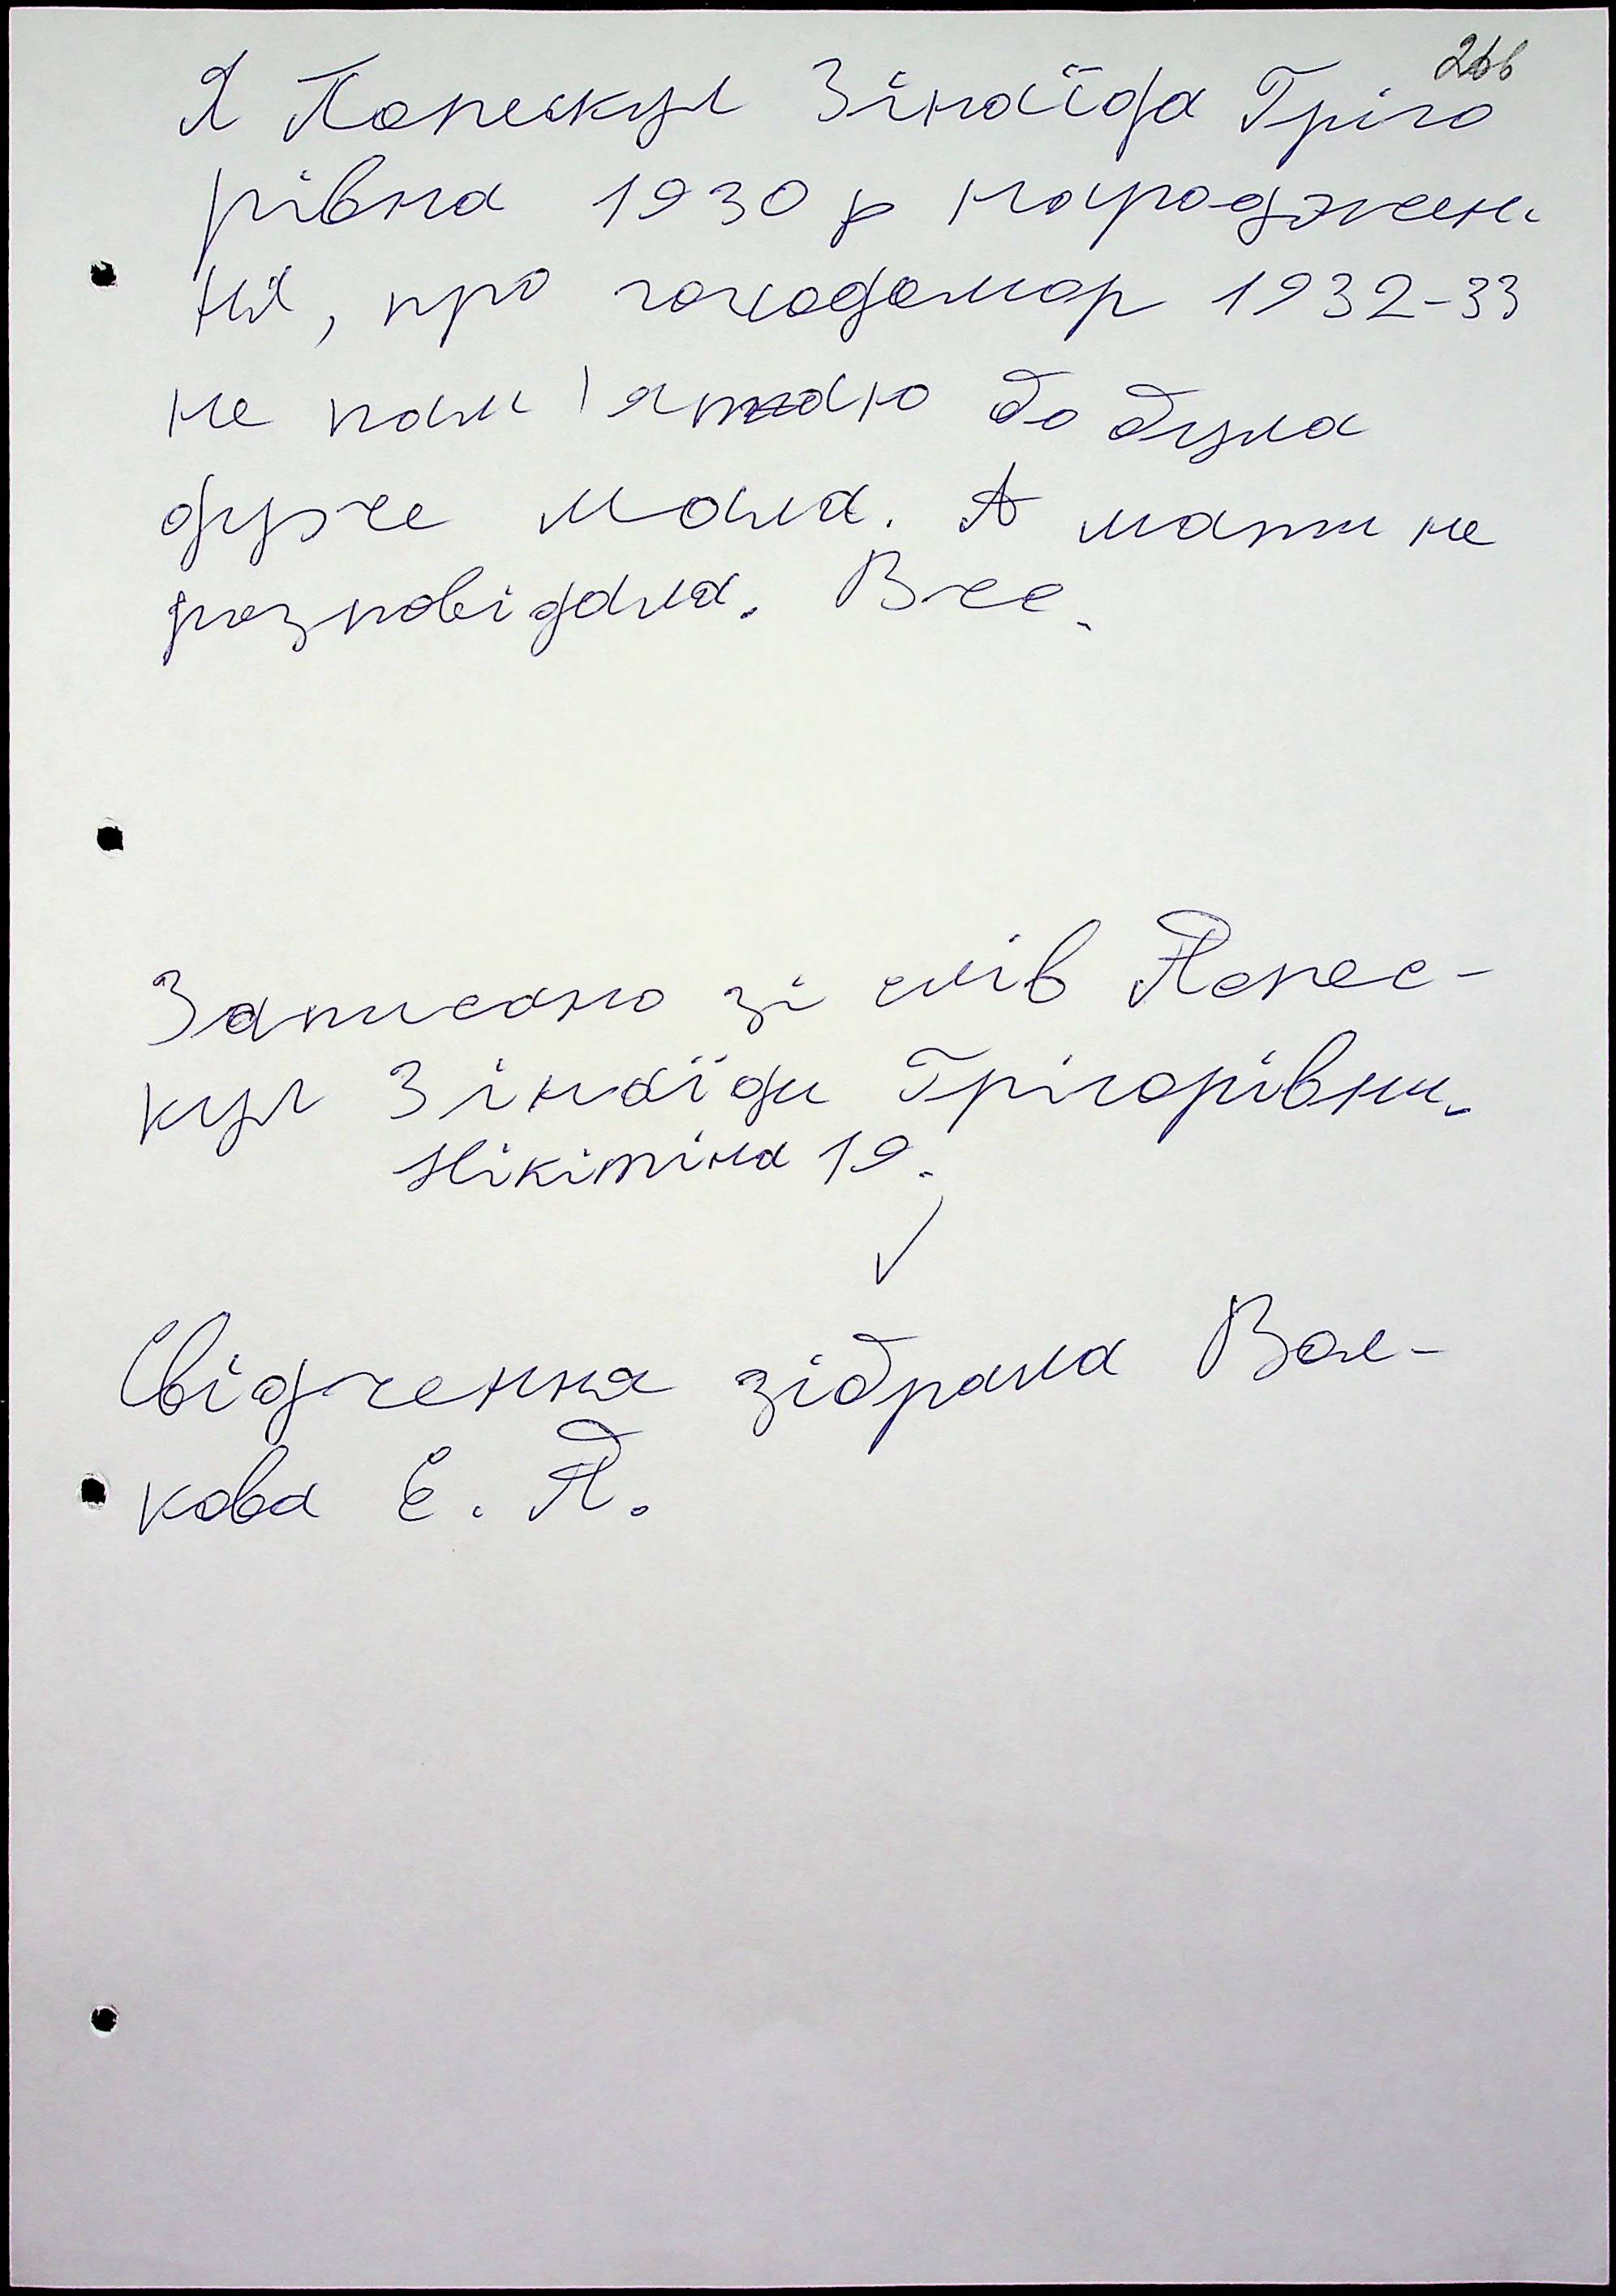 266
Я Попескул Зінаїда Гріго
рівна 1930 р народжен-
ня, про голодомор 1932-33
не пам'ятаю бо була
дуже мала. А мати не
розповідала. Все.
Записано зі слів Попес-
кул Зінаїди Грігорівни.
Нікітіна 19.
Свідчення зібрала Вол-
кова Є. П.